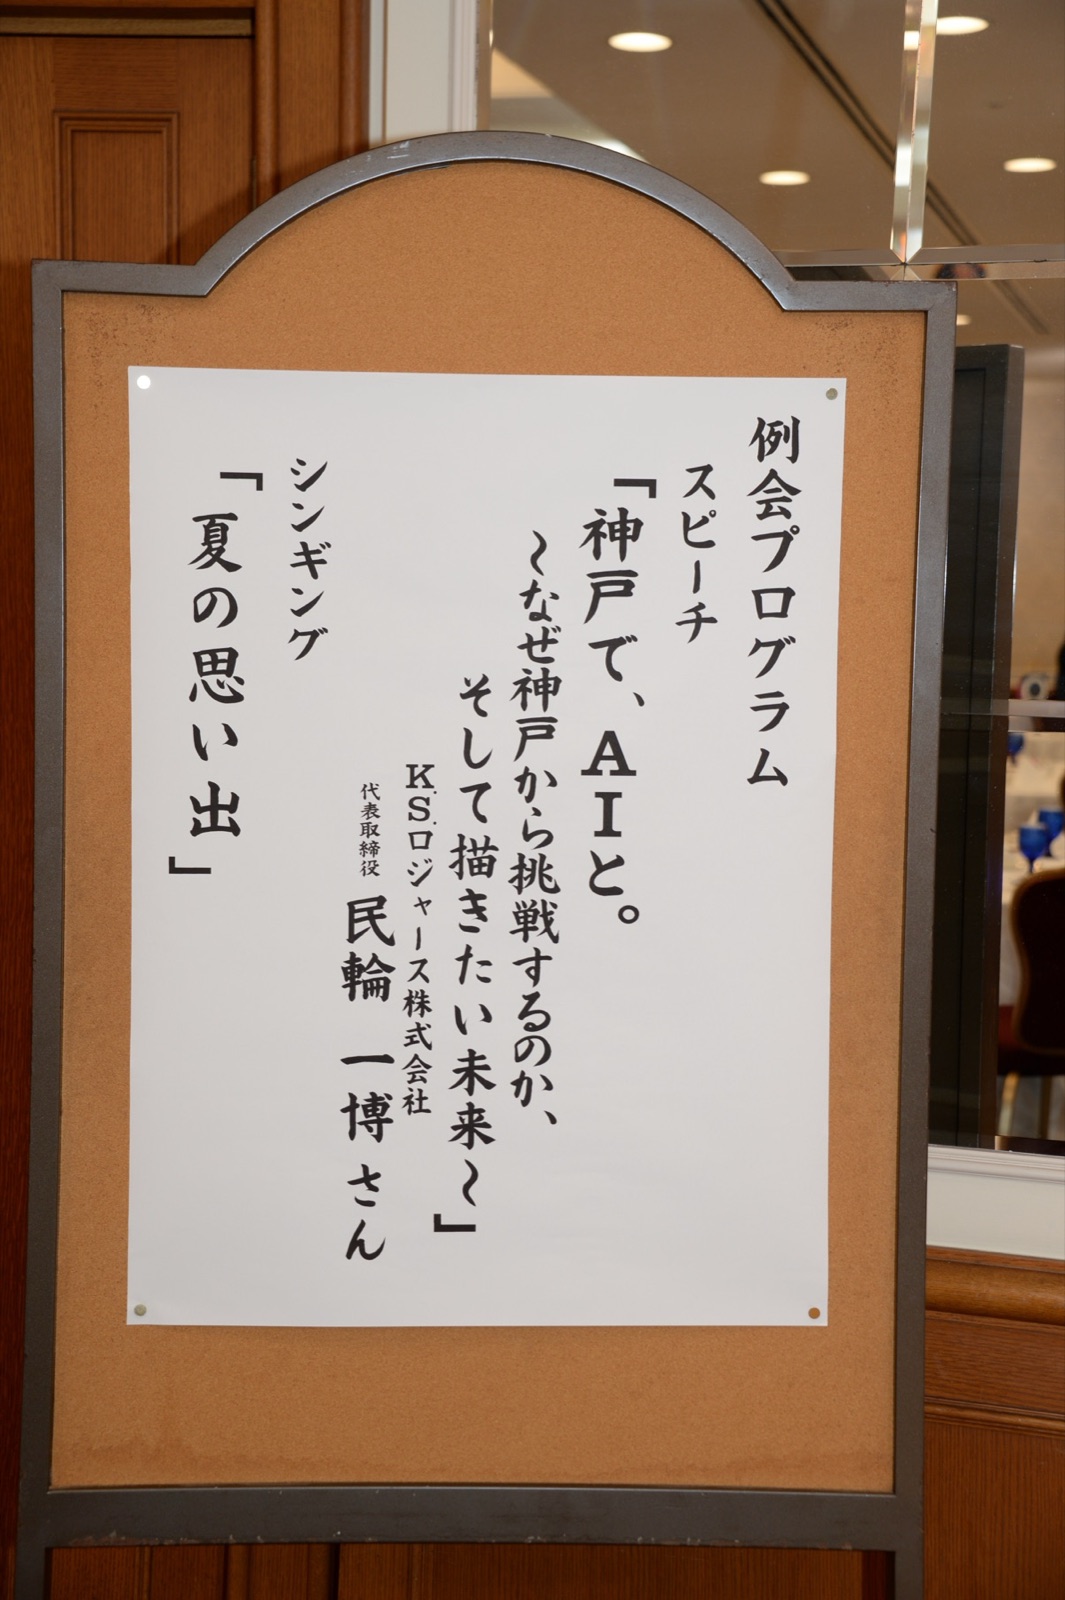 例会プログラム
スピーチ
「神戸で、AIと。
～なぜ神戸から挑戦するのか、
そして描きたい未来～」
K.S.ロジャース株式会社
代表取締役 民輪 一博 さん
シンギング
「夏の思い出」